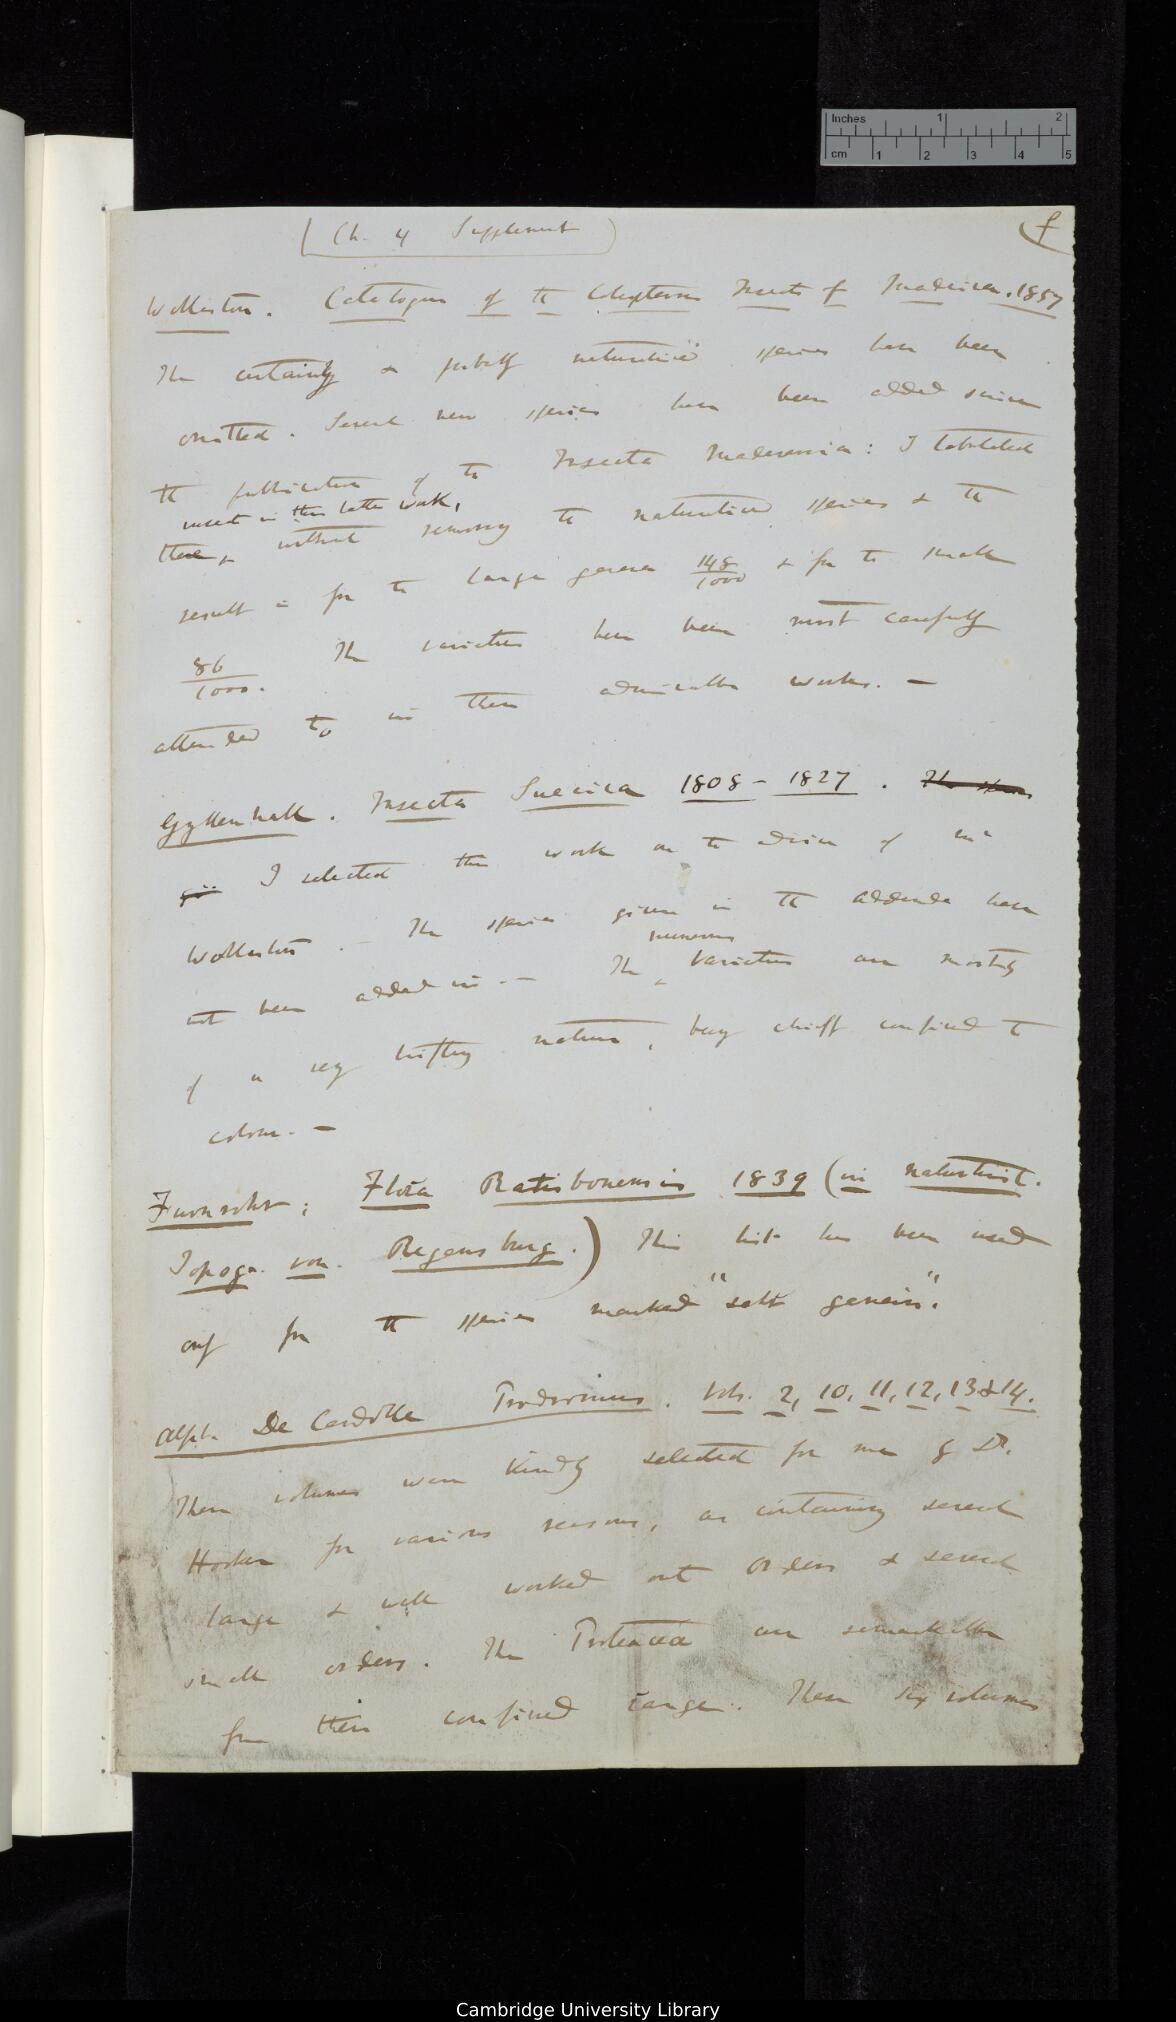 Inches 1 2
cm 1 2 3 4 5
(Ch. 4 Supplement) f
Wollaston. Catalogue of the Coleopterous Insects of Madeira. 1857
The certainly & probably naturalised species have been
omitted. Several new species have been added since
the publication of the Insecta Maderensia: I tabulated
insects in this latter work,
these, & without removing the naturalised species & the
result is for the large genera 148/1000 & for the small
86/1000. The varieties have been most carefully
attended to in these admirable works. —
Gyllenhall. Insecta Suecica 1808 - 1827. The species
giv I selected this work on the advice of Mr
Wollaston. — The species given in the addenda have
numerous
not been added in. — The ^ varieties are mostly
of a very trifling nature, being chiefly confined to
colour. —
Furnrohr; Flora Ratisbonensis 1839 (in naturhist.
Topogr. von. Regensburg.) This list has been used
only for the species marked "sehr gemein".
Alph. De Candolle Prodromus. Vols. 2, 10, 11, 12, 13 & 14.
These volumes were kindly selected for me by Dr.
Hooker for various reasons, as containing several
large & well worked out orders & several
small orders. The Proteaceæ are remarkable
from their confined range. These six volumes
Cambridge University Library